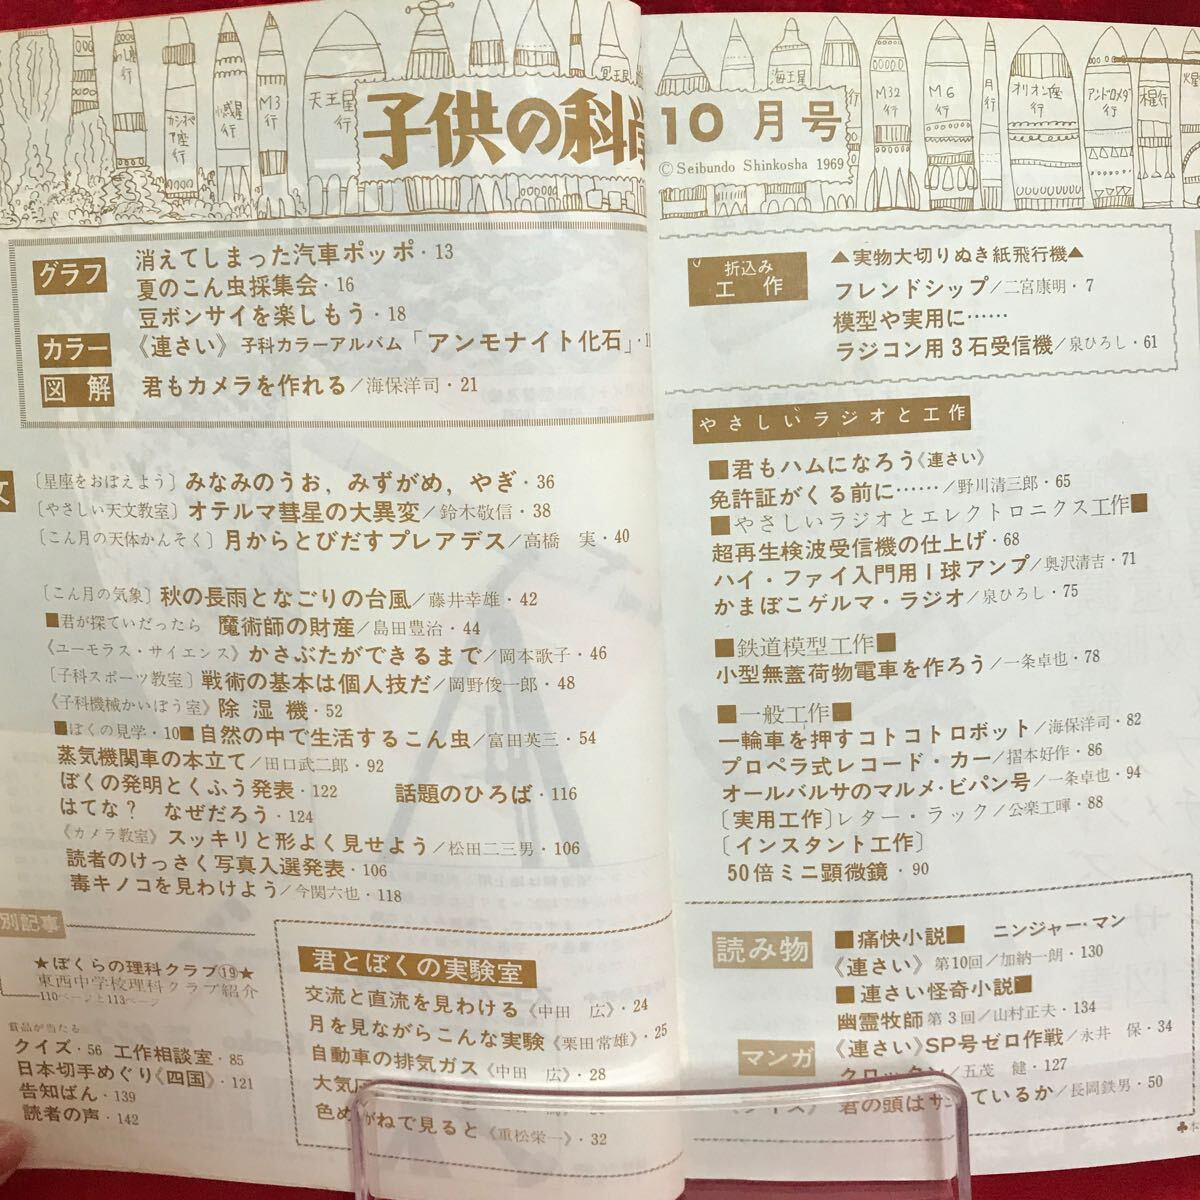 わし座行
カシオペア座行
小惑星行
M3行
天王星行
冥王星
海王星
M32行
M6行
月行
オリオン座行
アンドロメダ行
木星行
子供の科
10月号
©Seibundo Shinkosha 1969
グラフ
消えてしまった汽車ポッポ・13
夏のこん虫採集会・16
豆ボンサイを楽しもう・18
カラー
《連さい》子科カラーアルバム「アンモナイト化石」・1
図解
君もカメラを作れる/海保洋司・21
文
〔星座をおぼえよう〕みなみのうお，みずがめ，やぎ・36
〔やさしい天文教室〕オテルマ彗星の大異変/鈴木敬信・38
〔こん月の天体かんそく〕月からとびだすプレアデス/高橋 実・40
〔こん月の気象〕秋の長雨となごりの台風/藤井幸雄・42
■君が探ていだったら 魔術師の財産/島田豊治・44
《ユーモラス・サイエンス》かさぶたができるまで/岡本歌子・46
〔子科スポーツ教室〕戦術の基本は個人技だ/岡野俊一郎・48
《子科機械かいぼう室》除湿機・52
■ぼくの見学・10■自然の中で生活するこん虫/富田英三・54
蒸気機関車の本立て/田口武二郎・92
ぼくの発明とくふう発表・122 話題のひろば・116
はてな？ なぜだろう・124
《カメラ教室》スッキリと形よく見せよう/松田二三男・106
読者のけっさく写真入選発表・106
毒キノコを見わけよう/今関六也・118
別記事
★ぼくらの理科クラブ⑲★
東西中学校理科クラブ紹介
110ページと113ページ
賞品が当たる
クイズ・56 工作相談室・85
日本切手めぐり《四国》・121
告知ばん・139
読者の声・142
君とぼくの実験室
交流と直流を見わける《中田 広》・24
月を見ながらこんな実験《栗田常雄》・25
自動車の排気ガス《中田 広》・28
大気
色め がねで見ると《重松栄一》・32
折込み工作
▲実物大切りぬき紙飛行機▲
フレンドシップ/二宮康明・7
模型や実用に……
ラジコン用3石受信機/泉ひろし・61
やさしいラジオと工作
■君もハムになろう《連さい》
免許証がくる前に……/野川清三郎・65
■やさしいラジオとエレクトロニクス工作■
超再生検波受信機の仕上げ・68
ハイ・ファイ入門用1球アンプ/奥沢清吉・71
かまぼこゲルマ・ラジオ/泉ひろし・75
■鉄道模型工作■
小型無蓋荷物電車を作ろう/一条卓也・78
■一般工作■
一輪車を押すコトコトロボット/海保洋司・82
プロペラ式レコード・カー/摺本好作・86
オールバルサのマルメ・ビパン号/一条卓也・94
〔実用工作〕レター・ラック/公楽工暉・88
〔インスタント工作〕
50倍ミニ顕微鏡・90
読み物
■痛快小説■ ニンジャー・マン
《連さい》第10回/加納一朗・130
■連さい怪奇小説■
幽霊牧師 第3回/山村正夫・134
マンガ
《連さい》SP号ゼロ作戦/永井 保・34
クロッタン/五茂 健・127
君の頭はサ ているか/長岡鉄男・50
♣本